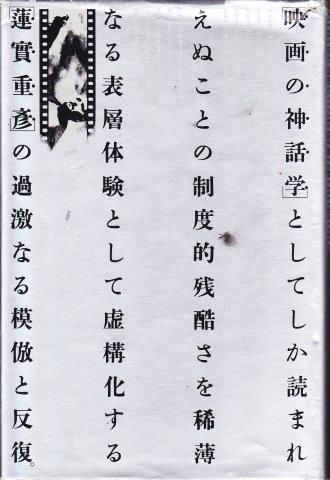 「映画の神話学」としてしか読まれ
えぬことの制度的残酷さを稀薄
なる表層体験として虚構化する
「蓮實重彥」の過激なる模倣と反復。